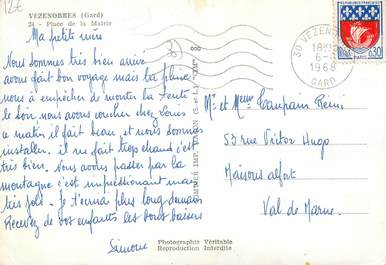 12€
VEZENOBRES (Gard)
24 - Place de la Mairie
Ma petite mère
Nous sommes très bien arrivé
avons fait bon voyage mais la pluie
nous a empêcher de monter la tente
le soir, nous avons coucher chez Louis
ce matin il fait beau et nous sommes
installer. il ne fait trop chaud c'est
très bien. Nous avons passer par la
montagne c'est impressionant mais
très joli. Je t'écrirai plus long demain
Recevez de vos enfants les bons baisers
Simone
30 VEZENOBRES
18H
6-
1968
GARD
PARIS
0,30
Mr et Mme Caupain Rémi
53 rue Victor Hugo
Maisons alfort
Val de Marne.
Photographie Véritable
Reproduction Interdite